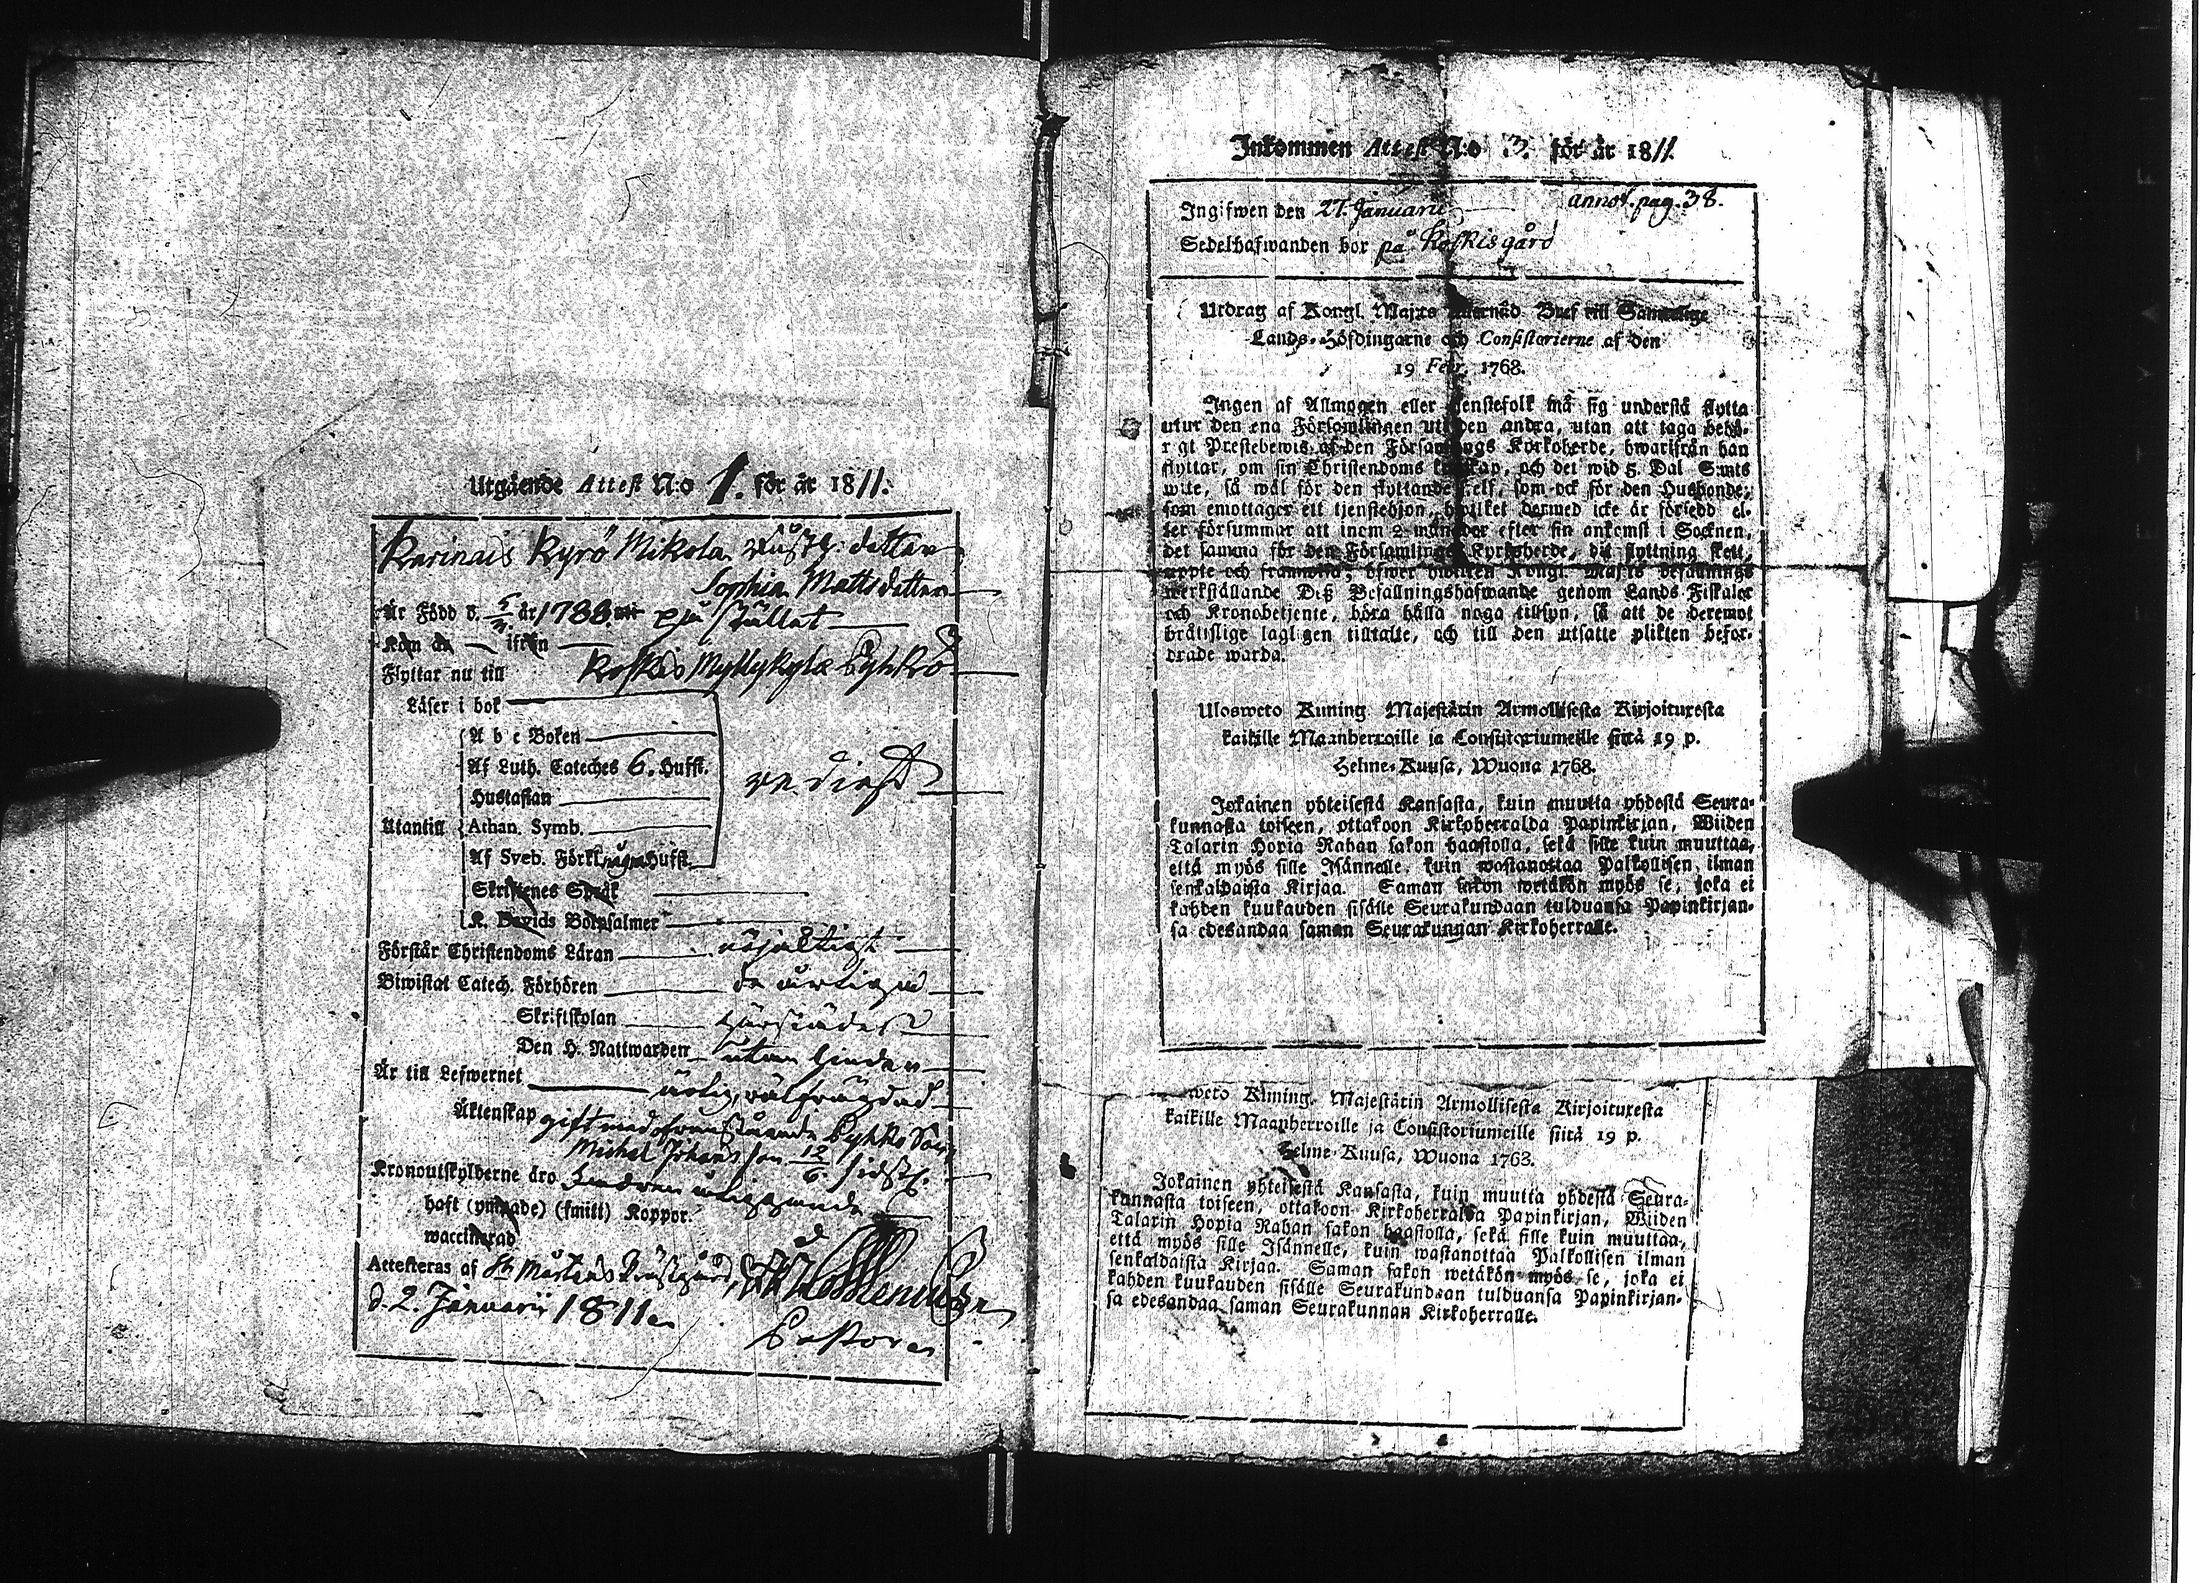 Utgående Attest N:o 1. för år 1811.
Karinais Kyrö Mikola Rusth: dottern
Sophia Matts dotter
Är Född d. år 1788 på stället
Kom år ifrån
Flyttar nu till Koskis Myllykylä Pyhkö
Läser i bok
A b c Boken
Af Luth. Cateches 6. Hufst.
Hustaflan
Utantill Athan. Symb.
Af Sveb. Förkl. Hufst.
Skriftenes Språk
K. Davids Botpsalmer
Förstår Christendoms Läran
Biwistat Catech. Förhören
Skriftskolan
Den H. Nattwarden utan hinder
Är till Lefwernet ärlig, välfrägdad
Äktenskap gift med Pyhkö Son
Michel Johans son 12/6 sidstl.
Kronoutskylderne äro
haft (ympade) (smitt) Koppor.
waccinerad
Attesteras af St Mårtens Prästgård,
d. 2. Januarii 1811
Pastor
Inkommen Attest N:o 3. för år 1811.
annot. pag. 38.
Ingifwen den 27. Januarii
Sedelhafwanden bor på Koskisgård
Utdrag af Kongl. Majts Allernåd. Bref till Samtelige
Lands-Höfdingarne och Consistorierne af den
19 Febr. 1768.
Ingen af Allmogen eller tjenstefolk må sig understå flytta
utur den ena Församlingen uti den andra, utan att taga behö-
rigt Prestebewis af den Församlings Kyrkoherde, hwarifrån han
flyttar, om sin Christendoms kunskap, och det wid 5. Dal S:mts
wite, så wäl för den flyttande self, som ock för den Husbonde,
som emottager ett tjenstehjon, hwilket dermed icke är försedd el-
ler försummar att inom 2 månader efter sin ankomst i Socknen,
det samma för den Församlings Kyrkoherde, dit flyttning skett,
uppte och framwisa; öfwer hwilken Kongl. Maj:ts befallnings
werkställande Deß Befallningshafwande genom Lands Fiskaler
och Kronobetjente, böra hålla noga tillsyn, så att de deremot
bråtslige lagligen tilltalte, och till den utsatte plikten befor-
drade warda.
Ulosweto Kuning. Majestätin Armollisesta Kirjoituxesta
kaikille Maanherroille ja Consistoriumeille siitä 19 p.
Helme-Kuusa, Wuona 1768.
Jokainen yhteisestä Kansasta, kuin muutta yhdestä Seura-
kunnasta toiseen, ottakoon Kirkoherralda Papinkirjan, Wiiden
Talarin Hopia Rahan sakon haastolla, sekä sille kuin muuttaa,
että myös sille Isännelle, kuin wastanottaa Palkollisen ilman
senkaldaista Kirjaa. Saman sakon wetäkön myös se, joka ei
kahden kuukauden sisälle Seurakundaan tulduansa Papinkirjan-
sa edesandaa saman Seurakunnan Kirkoherralle.
weto Kuning. Majestätin Armollisesta Kirjoituxesta
kaikille Maapherroille ja Consistoriumeille siitä 19 p.
Helme-Kuusa, Wuona 1763.
Jokainen yhteisestä Kansasta, kuin muutta yhdestä Seura-
kunnasta toiseen, ottakoon Kirkoherralda Papinkirjan, Wiiden
Talarin Hopia Rahan sakon haastolla, sekä sille kuin muuttaa,
että myös sille Isännelle, kuin wastanottaa Palkollisen ilman
senkaldaista Kirjaa. Saman sakon wetäkön myös se, joka ei
kahden kuukauden sisälle Seurakundaan tulduansa Papinkirjan-
sa edesandaa saman Seurakunnan Kirkoherralle.